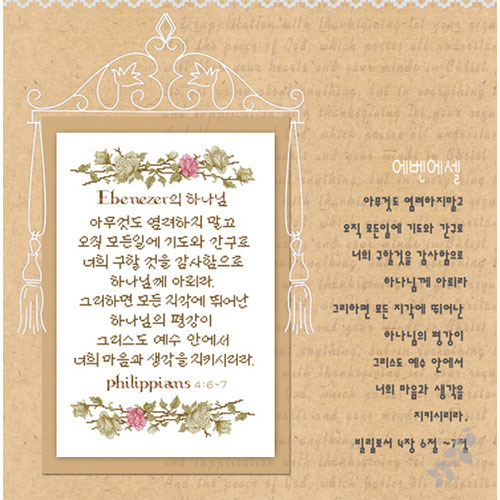 Ebenezer의 하나님
아무것도 염려하지 말고
오직 모든일에 기도와 간구로
너희 구할 것을 감사함으로
하나님께 아뢰라.
그리하면 모든 지각에 뛰어난
하나님의 평강이
그리스도 예수 안에서
너희 마음과 생각을 지키시리라.
philippians 4:6-7
에벤에셀
아무것도 염려하지말고
오직 모든일에 기도와 간구로
너희 구할것을 감사함으로
하나님께 아뢰라
그리하면 모든 지각에 뛰어난
하나님의 평강이
그리스도 예수 안에서
너희 마음과 생각을
지키시리라.
빌립보서 4장 6절 ~7절